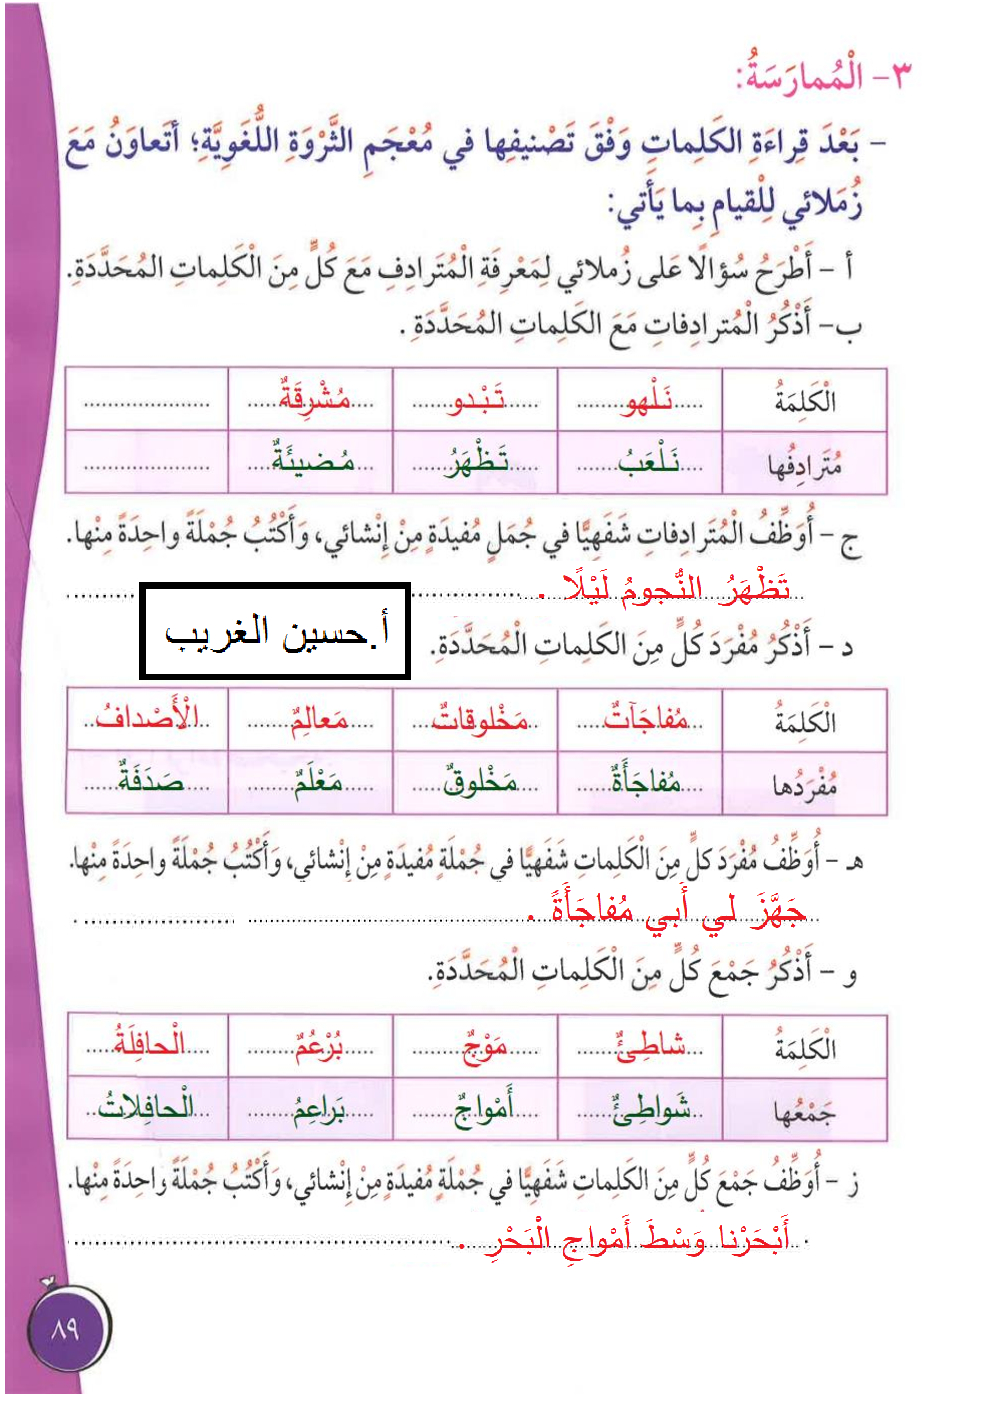 ٣- الْمُمارَسَةُ:
- بَعْدَ قِراءَةِ الكَلِماتِ وَفْقَ تَصْنيفِها في مُعْجَمِ الثَّرْوَةِ اللُّغَوِيَّةِ؛ أتَعاوَنُ مَعَ
زُمَلائي لِلْقيامِ بِما يَأتي:
أ - أَطْرَحُ سُؤالًا عَلى زُملائي لِمَعْرِفَةِ الْمُتَرادِفِ مَعَ كُلٍّ مِنَ الْكَلِماتِ المُحَدَّدَةِ.
ب- أَذْكُرُ الْمُترادِفاتِ مَعَ الكَلِماتِ المُحَدَّدَةِ .
الْكَلِمَةُ نَلْهو تَبْدو مُشْرِقَةٌ ....................
مُتَرادِفُها نَلْعَبُ تَظْهَرُ مُضيئَةٌ ....................
ج - أُوَظِّفُ الْمُتَرادِفاتِ شَفَهِيًّا في جُمَلٍ مُفيدَةٍ مِنْ إِنْشائي، وَأَكْتُبُ جُمْلَةً واحِدَةً مِنْها.
تَظْهَرُ النُّجومُ لَيْلًا .
أ.حسين الغريب
د - أَذْكُرُ مُفْرَدَ كُلٍّ مِنَ الكَلِماتِ الْمُحَدَّدَةِ.
الْكَلِمَةُ مُفاجَآتٌ مَخْلوقاتٌ مَعالِمٌ الْأَصْدافُ
مُفْرَدُها مُفاجَأَةٌ مَخْلوقٌ مَعْلَمٌ صَدَفَةٌ
هـ - أُوَظِّفُ مُفْرَدَ كلٍّ مِنَ الْكَلِماتِ شَفَهِيًّا في جُمْلَةٍ مُفيدَةٍ مِنْ إِنْشائي، وَأَكْتُبُ جُمْلَةً واحِدَةً مِنْها.
جَهَّزَ لي أَبي مُفاجَأَةً .
و - أَذْكُرُ جَمْعَ كُلٍّ مِنَ الْكَلِماتِ الْمُحَدَّدَةِ.
الْكَلِمَةُ شاطِئٌ مَوْجٌ بُرْعُمٌ الْحافِلَةُ
جَمْعُها شَواطِئٌ أَمْواجٌ بَراعِمُ الْحافِلاتُ
ز - أُوَظِّفُ جَمْعَ كُلٍّ مِنَ الكَلِماتِ شَفَهِيًّا في جُمْلَةٍ مُفيدَةٍ مِنْ إِنْشائي، وَأَكْتُبُ جُمْلَةً واحِدَةً مِنْها.
أَبْحَرْنا وَسْطَ أَمْواجِ الْبَحْرِ .
٨٩